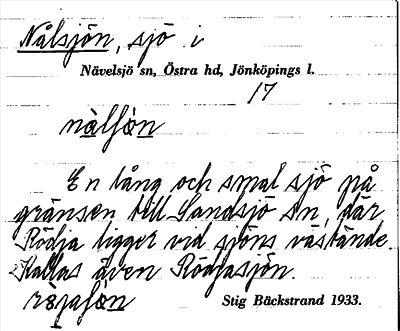 Nålsjön, sjö i
Nävelsjö sn, Östra hd, Jönköpings l.
17
En lång och smal sjö på
gränsen till Sandsjö sn, där
Rödja ligger vid sjöns västände.
Kallas även Rödjasjön.
Stig Bäckstrand 1933.